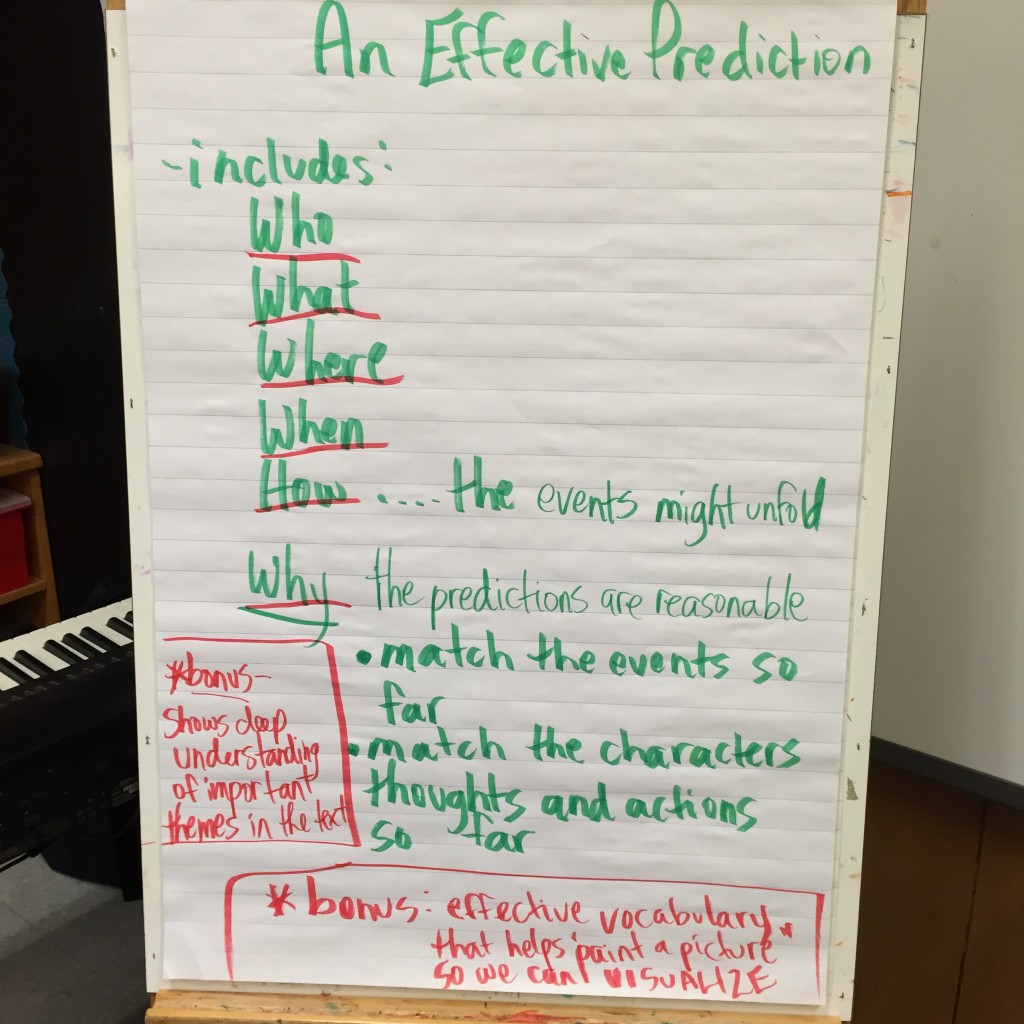 An Effective Prediction
-includes:
Who
What
Where
When
How .... the events might unfold
Why the predictions are reasonable
• match the events so
far
• match the characters
thoughts and actions
so far
*bonus-
shows deep
understanding
of important
themes in the text
* bonus: effective vocabulary
that helps "paint a picture"
so we can VISUALIZE